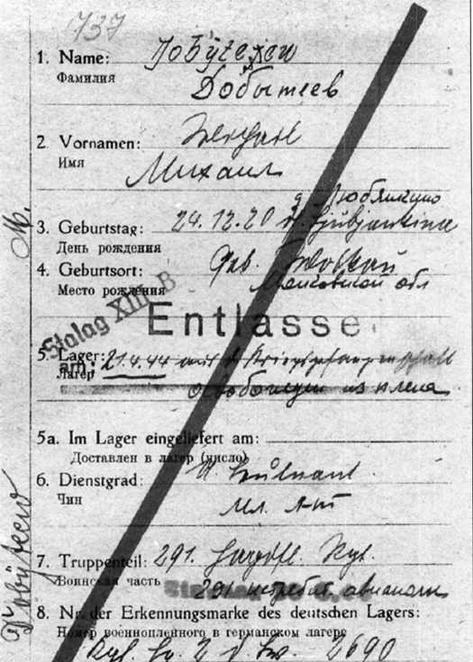 737
1. Name:
Фамилия
Добытеев
2. Vornamen:
Имя
Михаил
д. Любянкино
3. Geburtstag: 24.12.20 d. Ljubjankino
День рождения
4. Geburtsort: Geb. Moskau
Место рождения Московской обл
Stalag XIII B
Entlasse
5. Lager:
am: 21.4.44 aus d. Kriegsgefangenschaft
Лагерь освобожден из плена
5a. Im Lager eingeliefert am:
Доставлен в лагерь (число)
6. Dienstgrad:
Чин мл. л-т
7. Truppenteil: 291.
Воинская часть 291 истребит. авиаполк
8. Nr. der Erkennungsmarke des deutschen Lagers:
Номер военнопленного в германском лагере
2690
М.